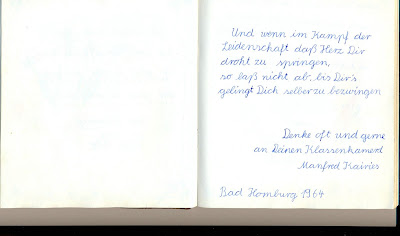 Und wenn im Kampf der
Leidenschaft daß Herz Dir
droht zu springen,
so laß nicht ab, bis Dir's
gelingt Dich selber zu bezwingen
Denke oft und gerne
an Deinen Klassenkamerd
Manfred Kairies
Bad Homburg 1964